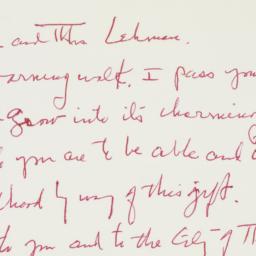 and Mrs Lehman.
morning walk. I pass you
grow into its charming
you are to be able and
by way of this gift.
to you and to the City of